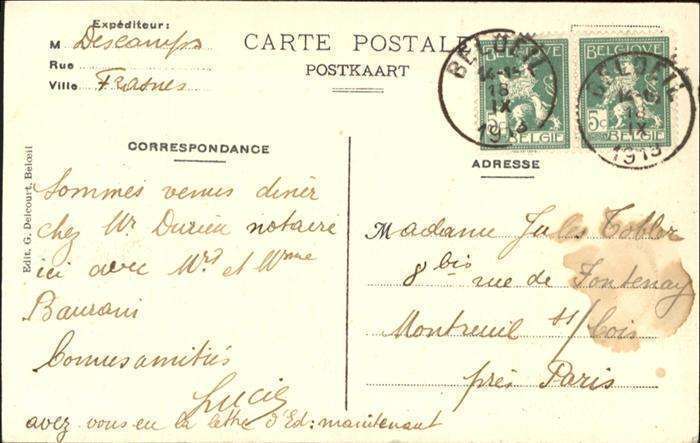 Expéditeur:
M Descamps
Rue
Ville Frasnes
CARTE POSTALE
POSTKAART
BELGIQUE
5c
BELGIE
BELGIQUE
5c
BELGIE
BELŒIL
14-15
18
IX
1913
BELŒIL
18
IX
1913
CORRESPONDANCE
Sommes venus diner
chez Mr Durieu notaire
ici avec Mr et Mme
Baurani
Bonnes amitiés
Lucie
avez vous eu la lettre d'Ed: maintenant
ADRESSE
Madame Jules Tobler
8 bis rue de Fontenay
Montreuil s/ Bois
près Paris
Edit. G. Delcourt, Belœil